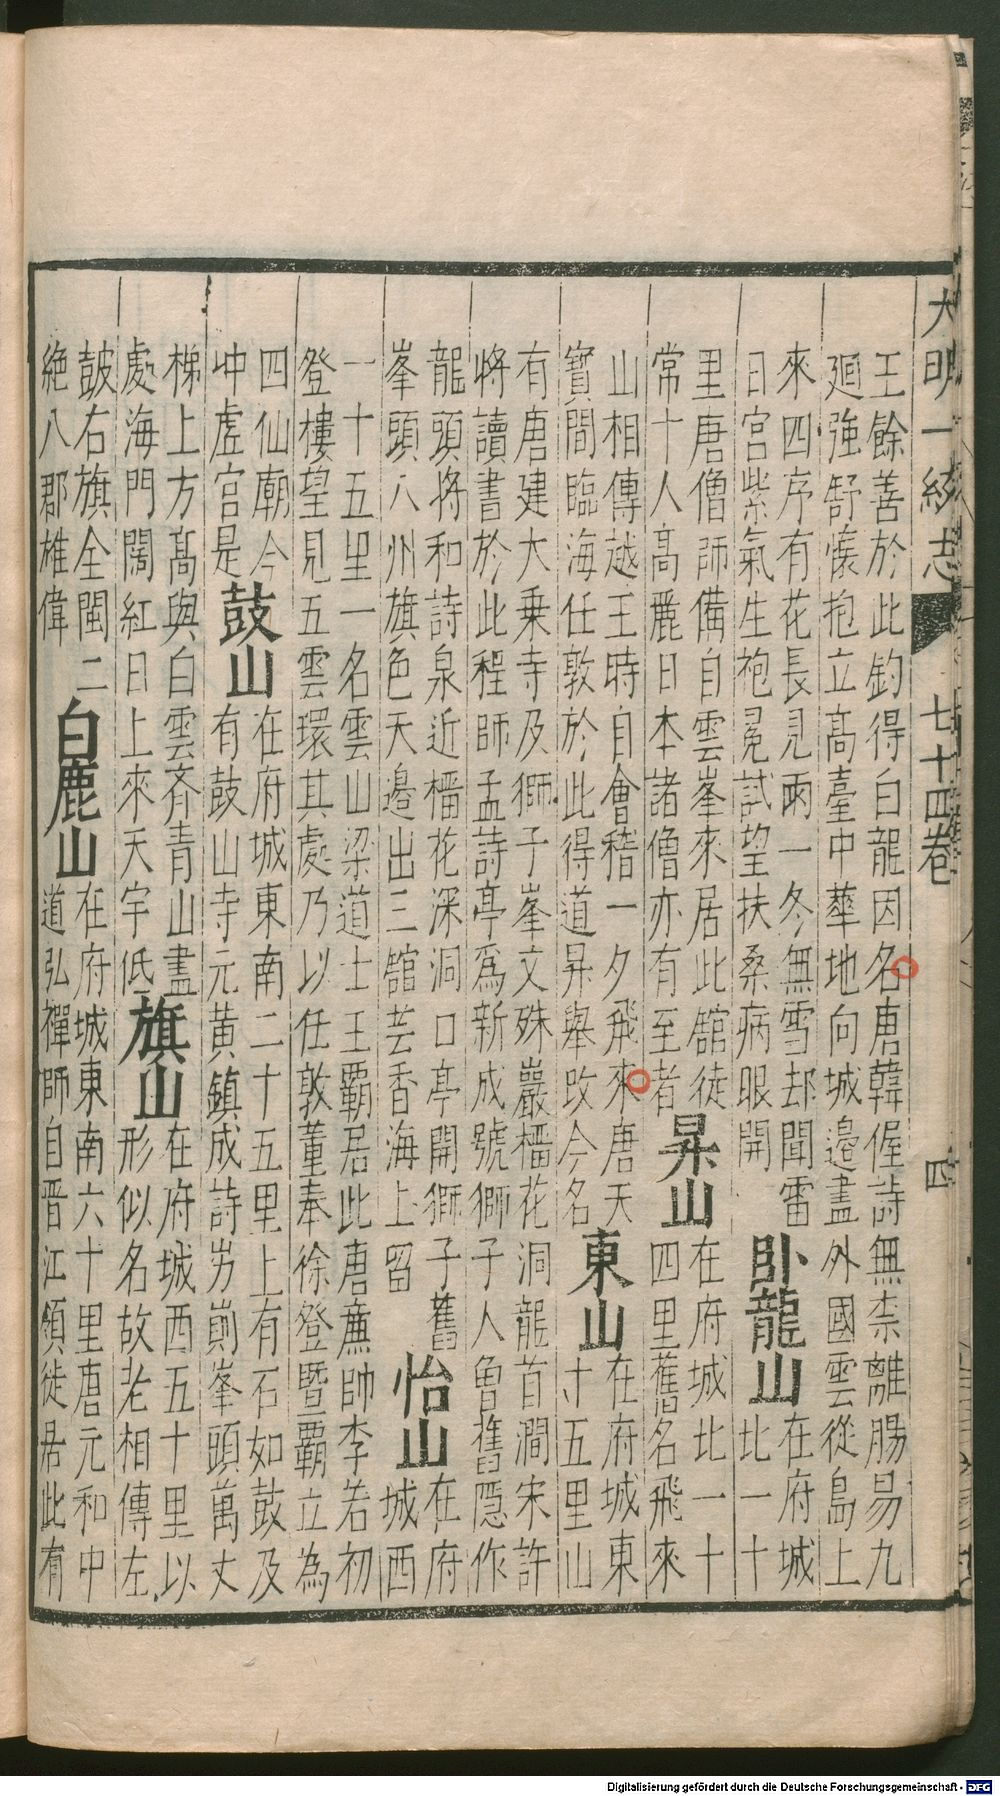 大明一統志 七十四卷 四
王餘善於此釣得白龍因名唐韓偓詩無柰離腸易九
廻強舒懷抱立高臺中華地向城邉盡外國雲從島上
來四序有花長見雨一冬無雪却聞雷
日宮紫氣生袍冕試望扶桑病眼開
卧龍山
在府城
北一十
里唐僧師備自雲峯來居此舘徒
常十人高麗日本諸僧亦有至者
昇山
在府城北一十
四里舊名飛來
山相傳越王時自會稽一夕飛來唐天
寳間臨海任敦於此得道昇舉攺今名
東山
在府城東
寸五里山
有唐建大乗寺及獅子峯文殊巖橊花洞龍首澗宋許
將讀書於此程師孟詩亭爲新成號獅子人魯舊隱作
龍頭將和詩泉近橊花深洞口亭開獅子舊
峯頭八州旗色天邉出三舘芸香海上留
怡山
在府
城西
一十五里一名雲山梁道士王霸居此唐亷帥李若初
登樓望見五雲環其處乃以任敦董奉徐登暨霸立為
四仙廟今
冲虗宮是
鼓山
在府城東南二十五里上有石如鼓及
有鼓山寺元黄鎮成詩屴崱峯頭萬丈
梯上方髙與白雲齊青山盡
處海門闊紅日上來天宇低
旗山
在府城西五十里以
形似名故老相傳左
皷右旗全閩二
絶八郡雄偉
白鹿山
在府城東南六十里唐元和中
道弘禪師自晋江領徒居此有
Digitalisierung gefördert durch die Deutsche Forschungsgemeinschaft - DFG